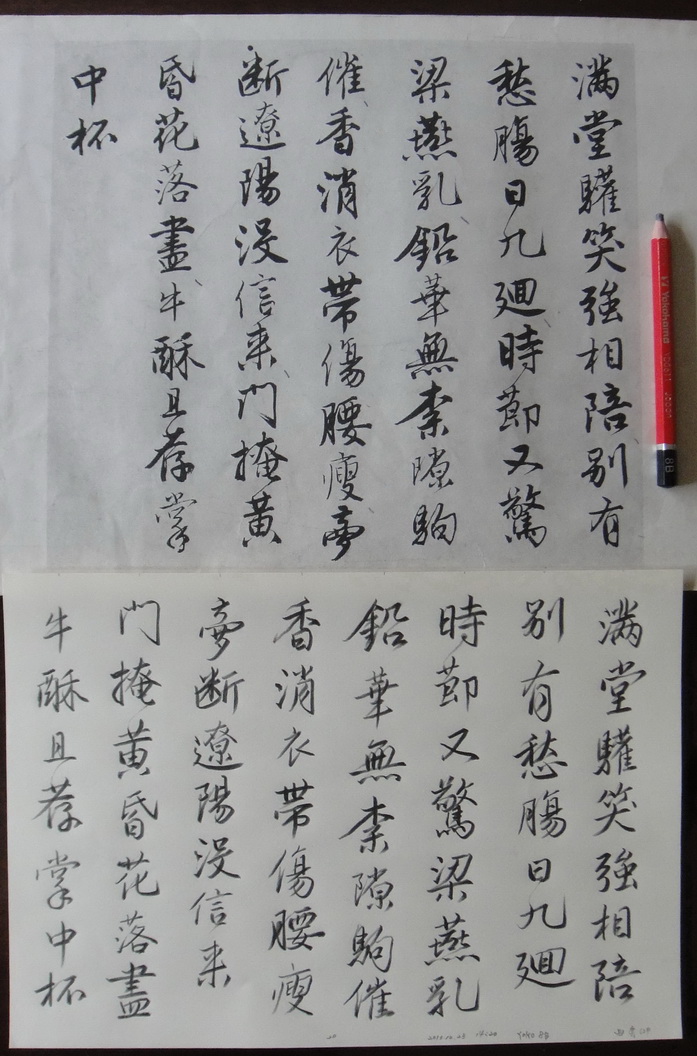 滿堂驩笑強相陪别有
愁腸日九廻時莭又驚
梁燕乳鉛華無柰隙駒
催香消衣帶傷腰瘦夢
断遼陽沒信来門掩黄
昏花落盡牛酥且荐掌
中杯
Yokohama
8B
滿堂驩笑強相陪
别有愁腸日九廻
時莭又驚梁燕乳
鉛華無柰隙駒催
香消衣帶傷腰瘦
夢断遼陽沒信来
門掩黄昏花落盡
牛酥且荐掌中杯